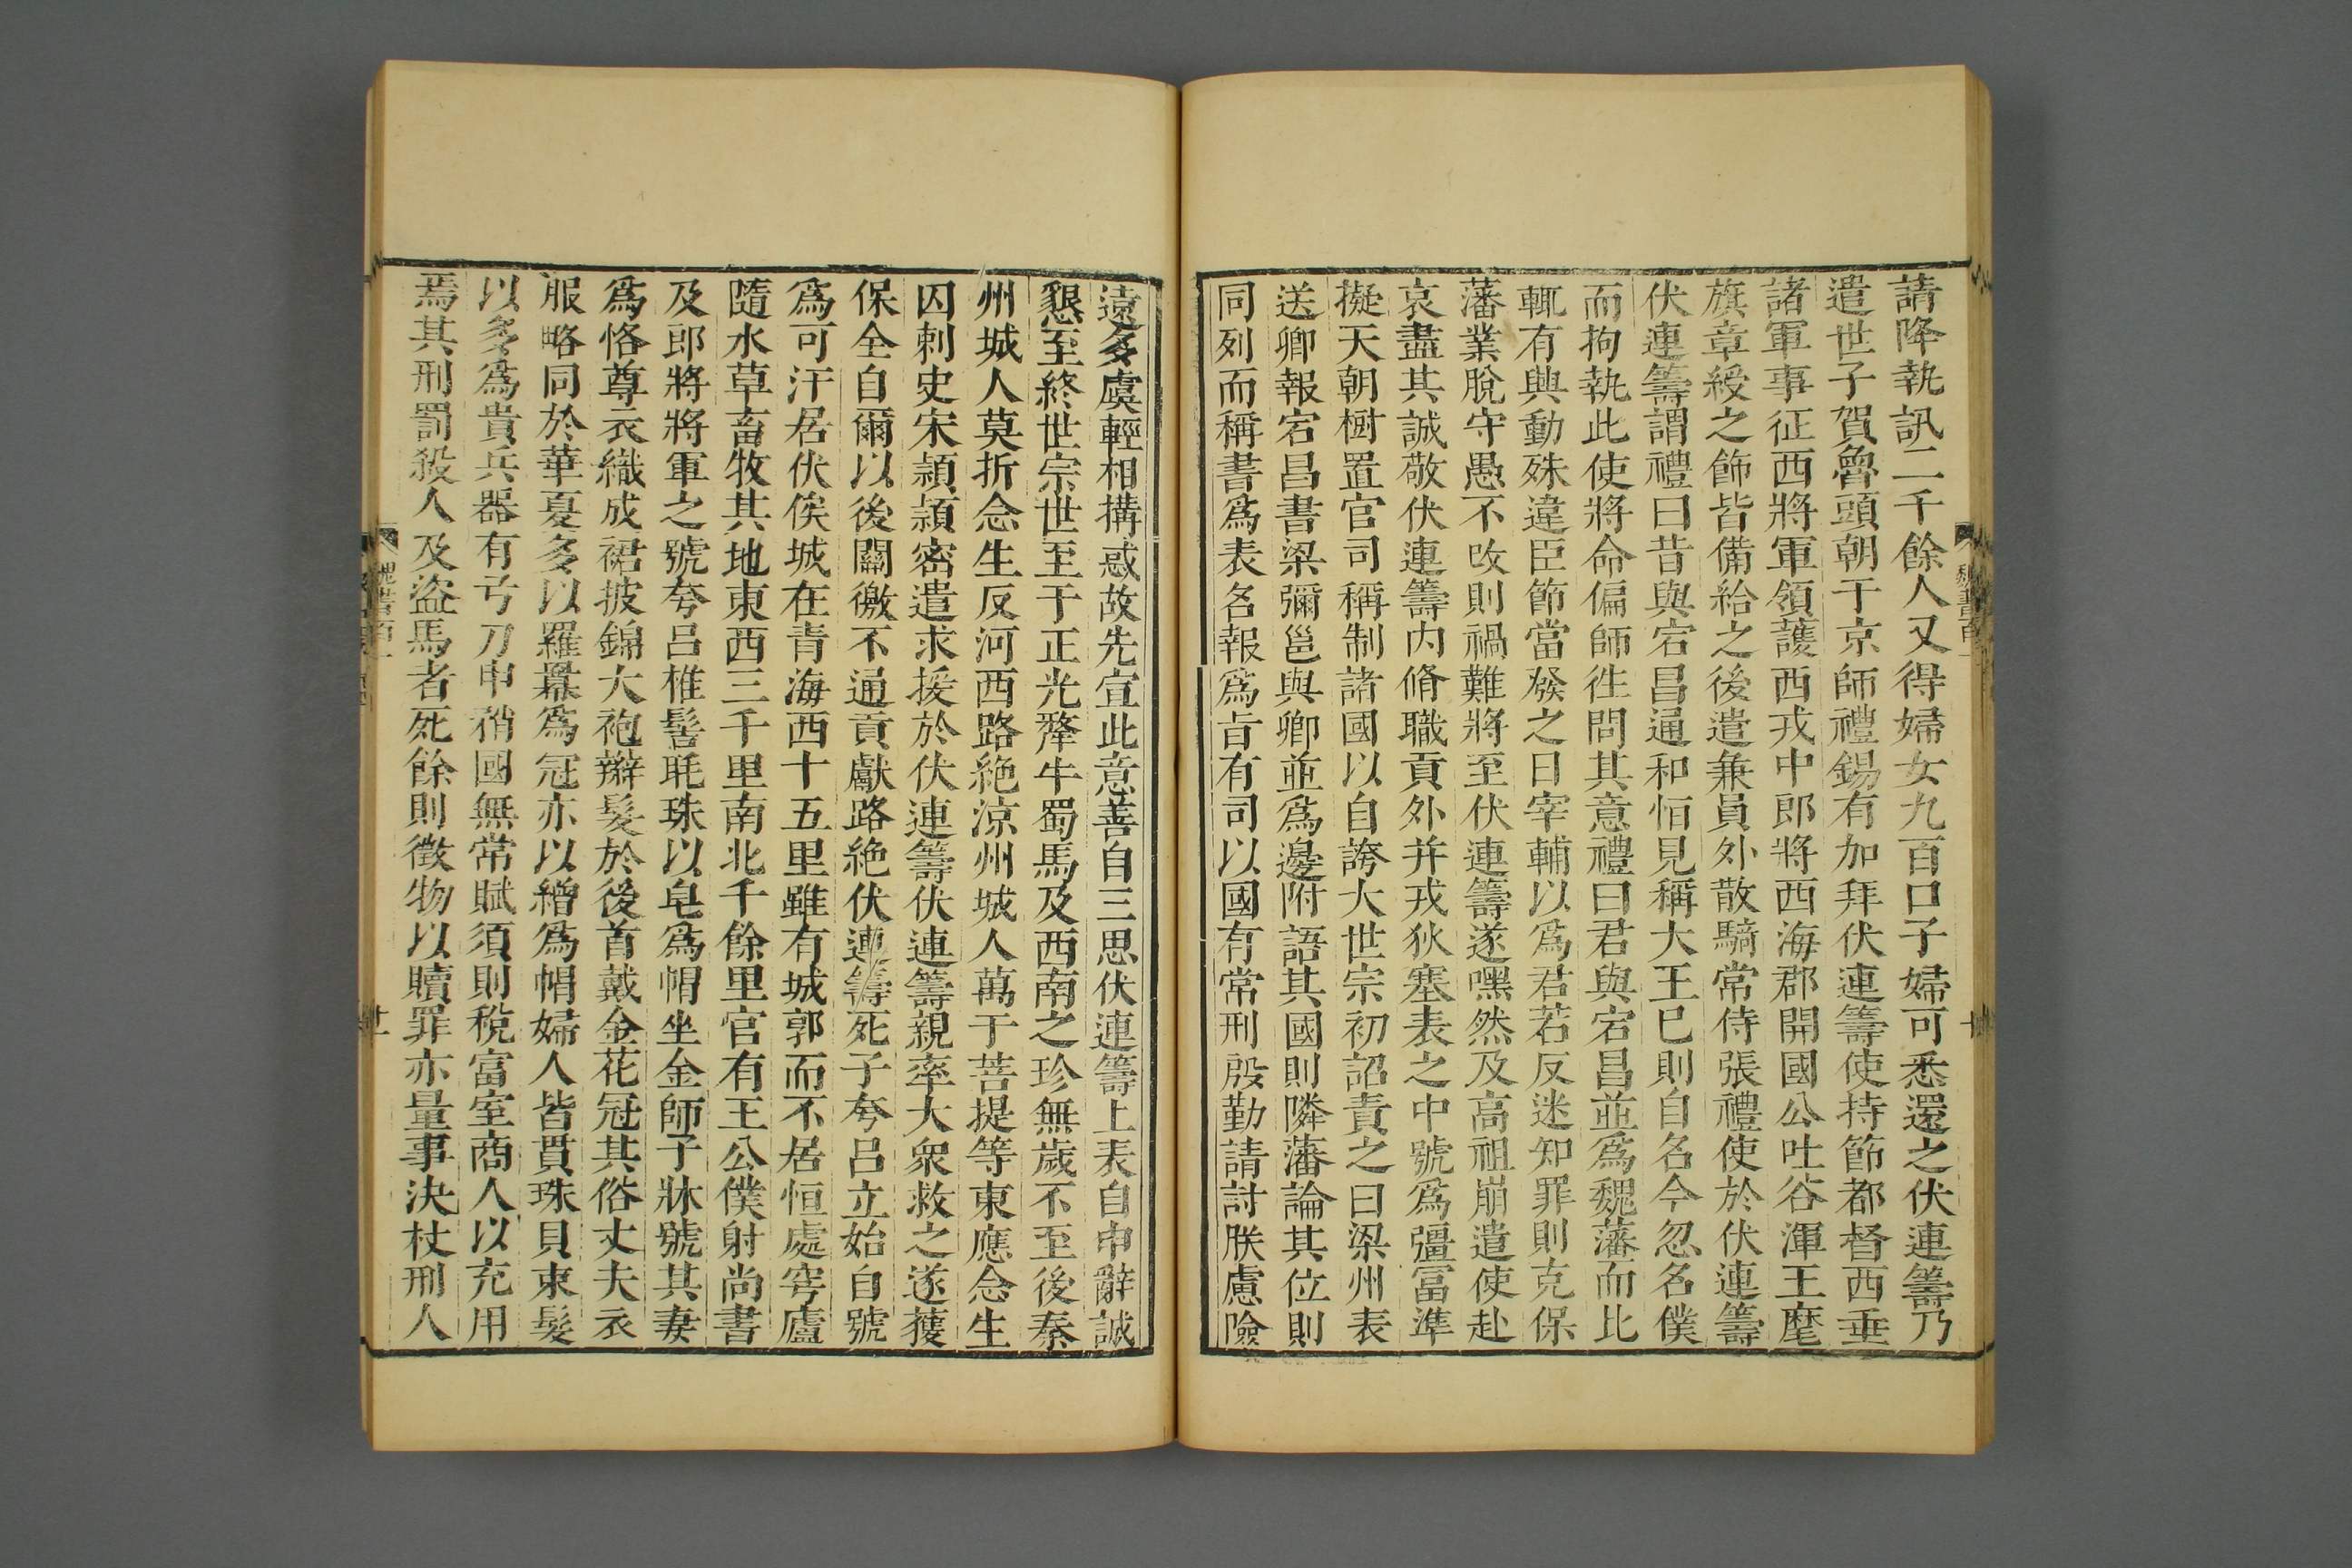 請降執訊二千餘人又得婦女九百口子婦可悉還之伏連籌乃
遣世子賀魯頭朝于京師禮錫有加拜伏連籌使持節都督西垂
諸軍事征西將軍領護西戎中郎將西海郡開國公吐谷渾王麾
旗章綬之飾皆備給之後遣兼員外散騎常侍張禮使於伏連籌
伏連籌謂禮曰昔與宕昌通和恒見稱大王已則自名今忽名僕
而拘執此使將命偏師往問其意禮曰君與宕昌並爲魏藩而比
輒有興動殊違臣節當發之日宰輔以爲君若反迷知罪則克保
藩業脫守愚不改則禍難將至伏連籌遂嘿然及高祖崩遣使赴
哀盡其誠敬伏連籌內脩職貢外并戎狄塞表之中號爲彊富準
擬天朝樹置官司稱制諸國以自誇大世宗初詔責之曰梁州表
送卿報宕昌書梁彌邕與卿並爲邊附語其國則隣藩論其位則
同列而稱書爲表名報爲旨有司以國有常刑殷勤請討朕慮險
遠多虞輕相搆惑故先宣此意善自三思伏連籌上表自申辭誠
懇至終世宗世至于正光犛牛蜀馬及西南之珍無歲不至後秦
州城人莫折念生反河西路絶涼州城人萬于菩提等東應念生
囚刺史宋頴頴密遣求援於伏連籌伏連籌親率大衆救之遂獲
保全自爾以後關徼不通貢獻路絶伏連籌死子夸呂立始自號
爲可汗居伏俟城在青海西十五里雖有城郭而不居恒處穹廬
隨水草畜牧其地東西三千里南北千餘里官有王公僕射尚書
及郎將將軍之號夸呂椎髻毦珠以皂爲帽坐金師子牀號其妻
爲恪尊衣織成裙披錦大袍辮髮於後首戴金花冠其俗丈夫衣
服略同於華夏多以羅羃爲冠亦以繒爲帽婦人皆貫珠貝束髮
以多爲貴兵器有弓刀甲矟國無常賦須則稅富室商人以充用
焉其刑罰殺人及盜馬者死餘則徵物以贖罪亦量事決杖刑人
魏書百一